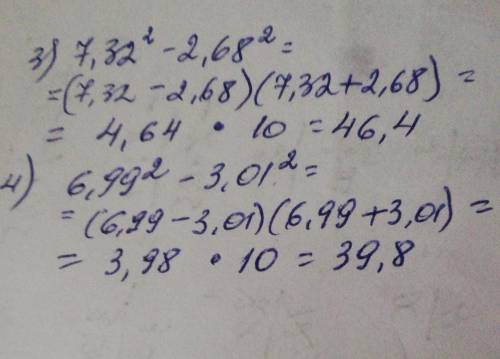 3) 7,32² - 2,68² =
= (7,32 - 2,68)(7,32 + 2,68) =
= 4,64 • 10 = 46,4
4) 6,99² - 3,01² =
= (6,99 - 3,01)(6,99 + 3,01) =
= 3,98 • 10 = 39,8